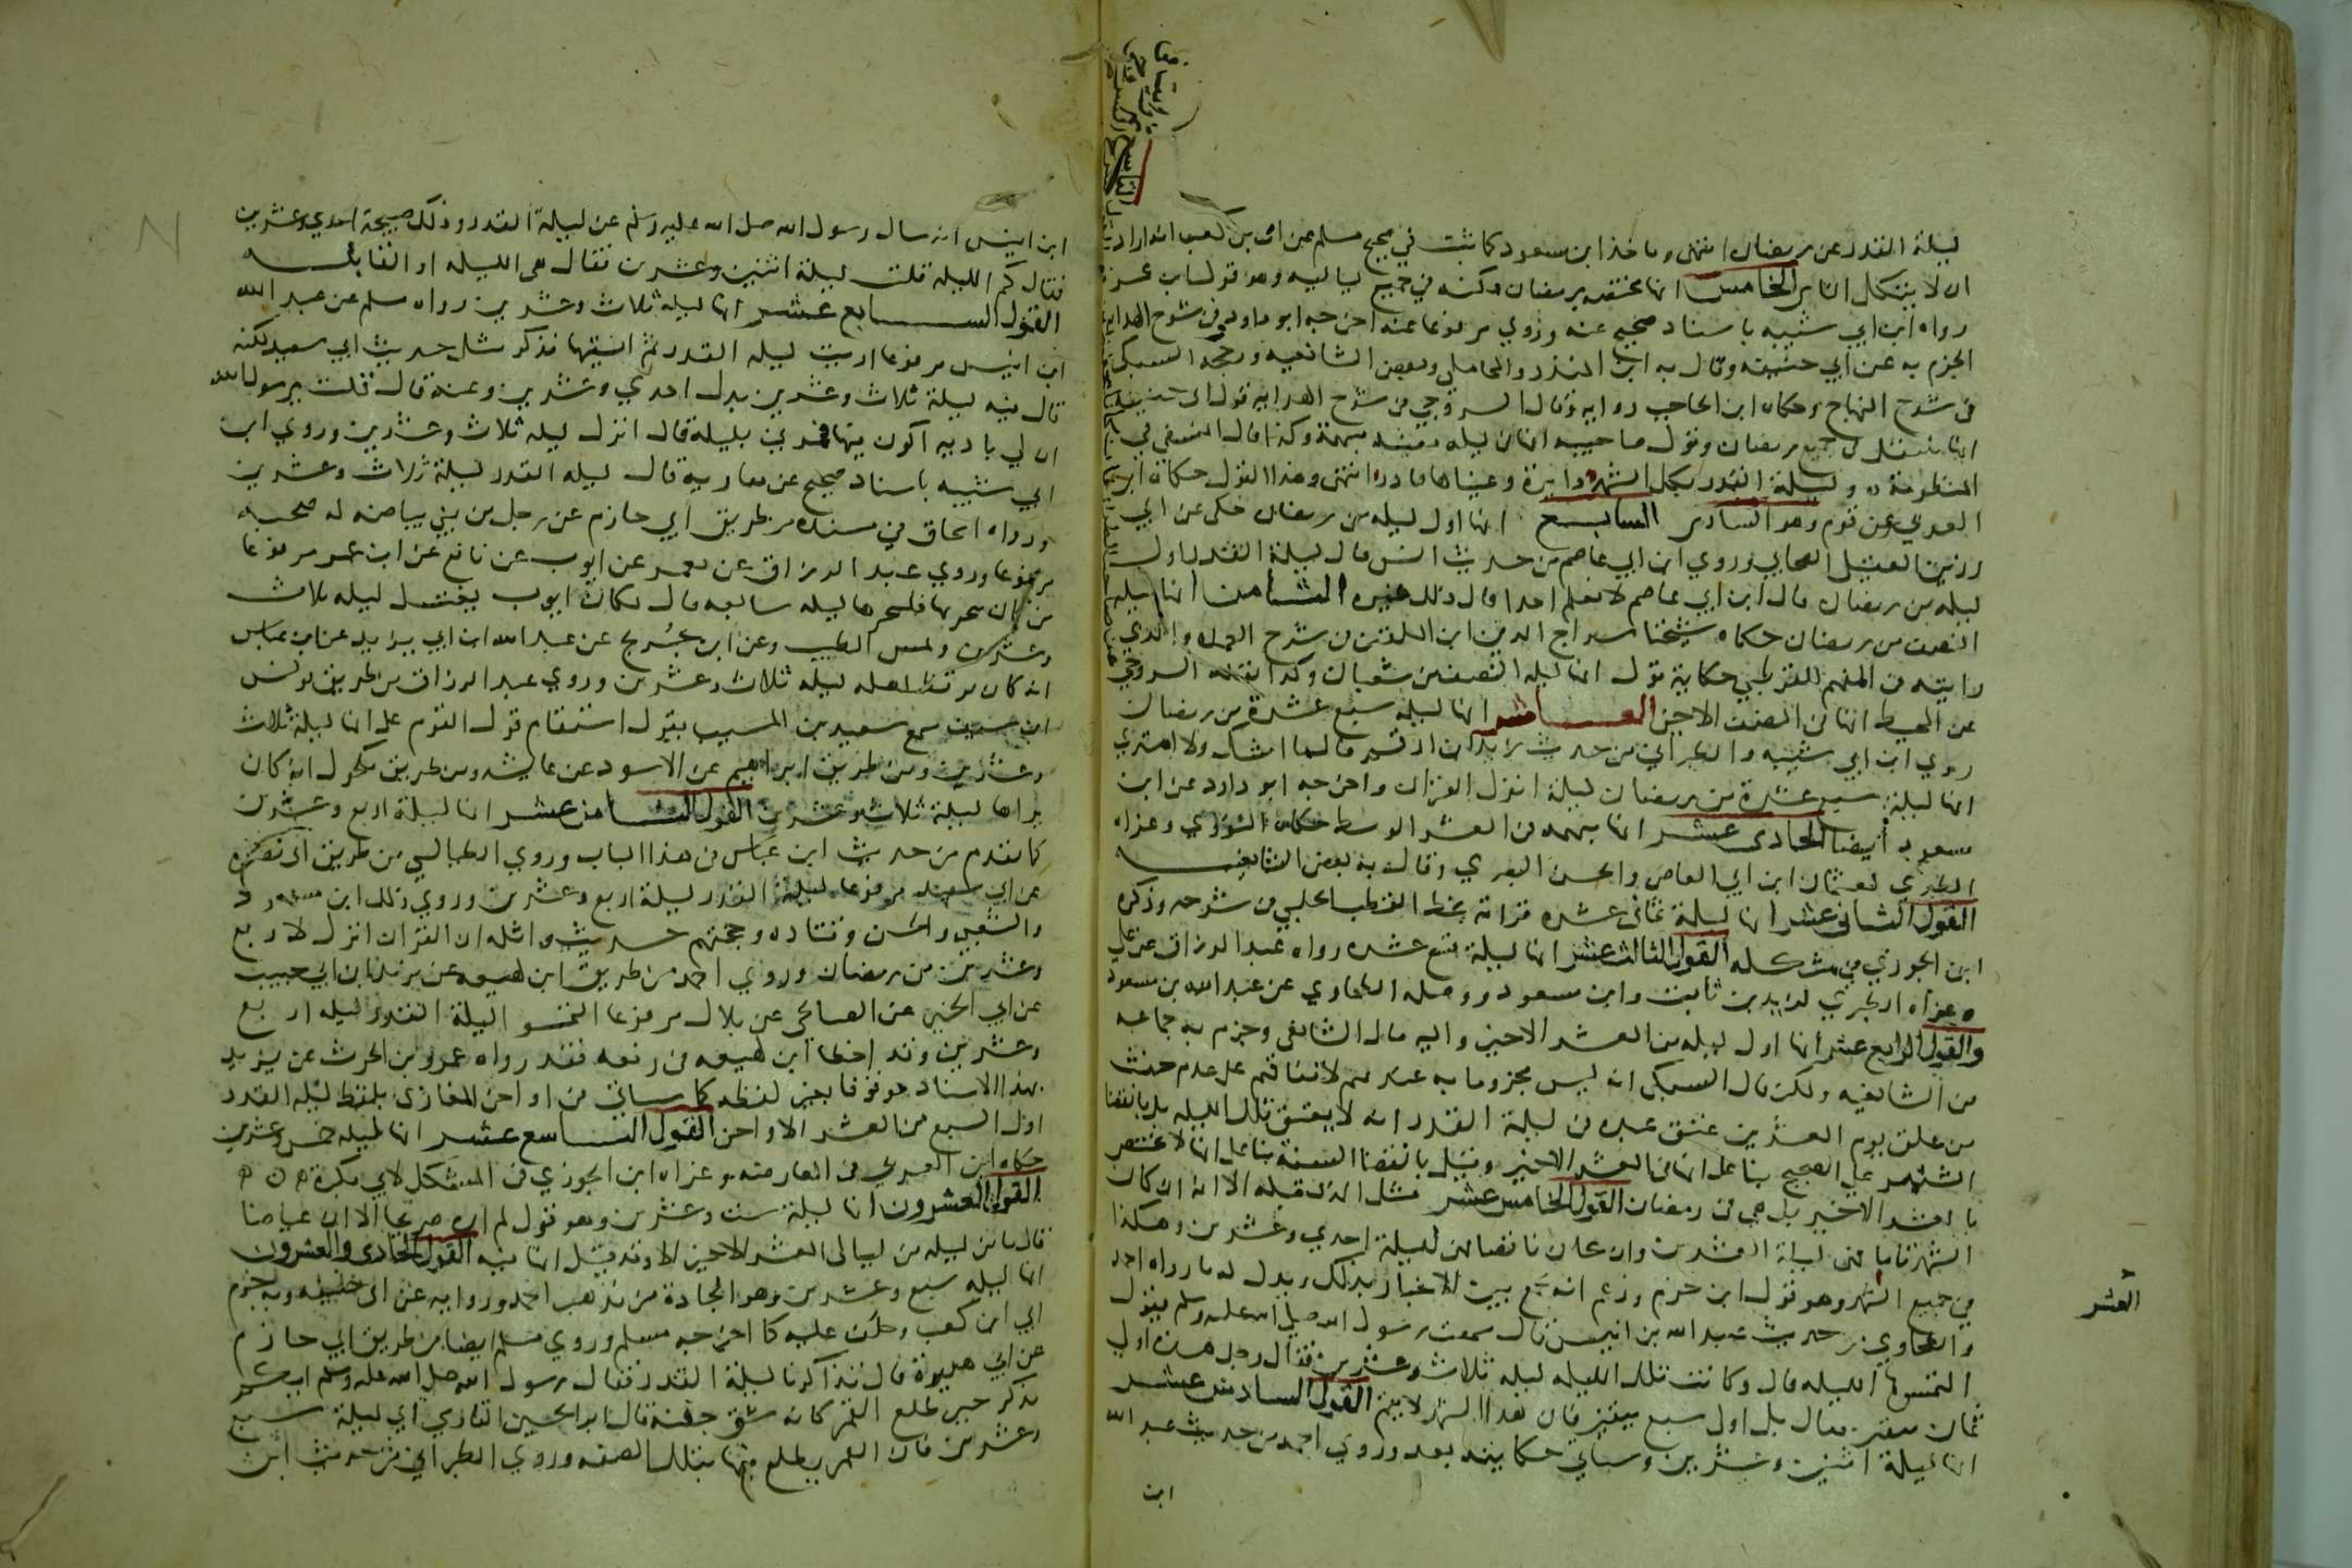 ليلة القدر عن رمضان انتهى وماخذ ابن مسعود كما ثبت في صحيح مسلم عن ابي بن كعب انه اراد
ان لا يتكل الناس الخامس انها مختصه برمضان ممكنه في جميع لياليه وهو قول ابن عمر
رواه ابن ابي شيبه باسناد صحيح عنه وروي مرفوعا عنه اخرجه ابو داود وفي شرح الهدايه
الجزم به عن ابي حنيفه وقال به ابن المنذر والمحاملي وبعض الشافعيه ورجحه السبكي
في شرح المنهاج وحكاه ابن الحاجب روايه وقال السروجي في شرح الهدايه قول ابي حنيفه
انها تنتقل في جميع رمضان وقول صاحبيه انها في ليله معينه مبهمة وكذا قال النسفي في
المنظومة وليلة القدر بكل الشهر دايرة وعيناها فادر انتهى وهذا القول حكاه ابن
العربي عن قوم وهو السادس السابع انها اول ليله من رمضان حكى عن ابي
رزين العقيلي الصحابي وروي ابن ابي عاصم من حديث انس قال ليلة القدر اول
ليله من رمضان قال ابن ابي عاصم لا نعلم احدا قال ذلك غيره الثامن انها ليله
النصف من رمضان حكاه شيخنا سراج الدين ابن الملقن في شرح العمده والذي
رايته في المفهم للقرطبي حكاية قول انها ليله النصف من شعبان وكذا نقله السروجي
عن المحيط انها في النصف الاخير العاشر انها ليله سبع عشرة من رمضان
روي ابن ابي شيبه والطبراني من حديث زيد ابن ارقم قال ما اشك ولا امتري
انها ليلة سبع عشرة من رمضان ليلة انزل القران واخرجه ابو داود عن ابن
مسعود ايضا الحادى عشر انها مبهمه في العشر الوسط حكاه النووي وعزاه
الطبري لعثمان ابن ابي العاص والحسن البصري وقال به بعض الشافعيه
القول الثاني عشر انها ليلة ثمانى عشره قراته بخط القطب الحلبي في شرحه وذكره
ابن الجوزي في مشكله القول الثالث عشر انها ليلة تسع عشره رواه عبد الرزاق عن علي
وعزاه الطبري لزيد بن ثابت وابن مسعود ووصله الطحاوي عن عبد الله بن مسعود
والقول الرابع عشر انها اول ليله من العشر الاخير واليه مال الشافعى وجزم به جماعه
من الشافعيه ولكن قال السبكي انه ليس مجزوما به عندهم لاتفاقهم على عدم حنث
من علق يوم العشرين عتق عبده في ليلة القدر انه لا يعتق تلك الليله بل بانقضا
الشهر على الصحيح بنا على انها في العشر الاخير وقيل بانقضا السنة بنا على انها لا تختص
بالعشر الاخير بل هي في رمضان القول الخامس عشر مثل الذي قبله الا انه ان كان
الشهر تاما فهى ليلة العشرين وان كان ناقصا فهى ليلة احدي وعشرين وهكذا
في جميع الشهر وهو قول ابن حزم وزعم انه يجمع بين الاخبار بذلك ويدل له ما رواه احمد
والطحاوي من حديث عبد الله بن انيس قال سمعت رسول الله صلى الله عليه وسلم يقول
التمسوها الليله قال وكانت تلك الليله ليله ثلاث وعشرين فقال رجل هذه اولي
بثمان بقين فقال بل اولي سبع بقين فان هذا الشهر لا يتم القول السادس عشر
انها ليلة اثنين وعشرين وسياتي حكايته بعد وروي احمد من حديث عبد الله
ابن
العشر
ابن انيس انه سال رسول الله صلى الله عليه وسلم عن ليلة القدر وذلك صبيحة احدي وعشرين
فقال كم الليله قلت ليلة اثنين وعشرين فقال هي الليله او القابله
القول السابع عشر انها ليله ثلاث وعشرين رواه مسلم عن عبد الله
ابن انيس مرفوعا اريت ليله القدر ثم انسيتها فذكر مثل حديث ابي سعيد لكنه
قال فيه ليلة ثلاث وعشرين بدل احدي وعشرين وعنه قال قلت يرسول الله
ان لي باديه اكون فيها فمرني بليله قال انزل ليله ثلاث وعشرين وروي ابن
ابي شيبه باسناد صحيح عن معاوية قال ليله القدر ليلة ثلاث وعشرين
ورواه اسحاق في مسنده من طريق ابي حازم عن رجل من بني بياضه له صحبه
مرفوعا وروي عبد الرزاق عن معمر عن ايوب عن نافع عن ابن عمر مرفوعا
من كان متحريها فليتحرها ليله سابعه قال فكان ايوب يغتسل ليله ثلاث
وعشرين ويمس الطيب وعن ابن جُريج عن عبيد الله ابن ابي يزيد عن ابن عباس
انه كان يوقظ اهله ليله ثلاث وعشرين وروي عبد الرزاق من طريق يونس
ابن سيف سمع سعيد بن المسيب يقول استقام قول القوم على انها ليلة ثلاث
وعشرين ومن طريق ابراهيم عن الاسود عن عايشه ومن طريق مكحول انه كان
يراها ليلة ثلاث وعشرين القول الثامن عشر انها ليلة اربع وعشرين
كما تقدم من حديث ابن عباس في هذا الباب وروي الطيالسي من طريق ابي نضره
عن ابي سعيد مرفوعا ليلة القدر ليلة اربع وعشرين وروي ذلك ابن مسعود
والشعبي والحسن وقتاده وحجتهم حديث واثله ان القران انزل لاربع
وعشرين من رمضان وروي احمد من طريق ابن لهيعه عن يزيد ابن ابي حبيب
عن ابي الخير عن الصنابحي عن بلال مرفوعا التمسوا ليلة القدر ليله اربع
وعشرين وقد اخطا ابن لهيعه في رفعه فقد رواه عمرو بن الحرث عن يزيد
بهذا الاسناد موقوفا بغير لفظه كما سياتي في اواخر المغازى بلفظ ليله القدر
اول السبع من العشر الاواخر القول التاسع عشر انها ليله خمس وعشرين
حكاه ابن العربي في العارضه وعزاه ابن الجوزي في المشكل لابي بكرة
القول العشرون انها ليلة ست وعشرين وهو قول لم اره صريحا الا ان عياضا
قال ما من ليله من ليالي العشر الاخير الا وقد قيل انها فيه القول الحادى والعشرون
انها ليله سبع وعشرين وهو الجادة من مذهب احمد وروايه عن ابى حنيفه وبه جزم
ابي ابن كعب وحلف عليه كما اخرجه مسلم وروي مسلم ايضا من طريق ابي حازم
عن ابي هريرة قال تذاكرنا ليلة القدر فقال رسول الله صلى الله عليه وسلم ايكم
يذكر حين طلع القمر كانه شق جفنة قال ابو الحسين الفارسي اي ليلة سبع
وعشرين فان القمر يطلع فيها بتلك الصفه وروي الطبراني من حديث ابن